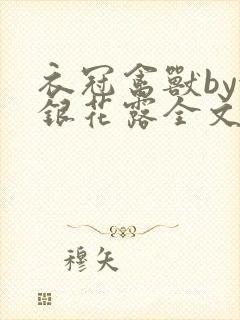 衣冠禽獸by
銀花露全文
穆矢